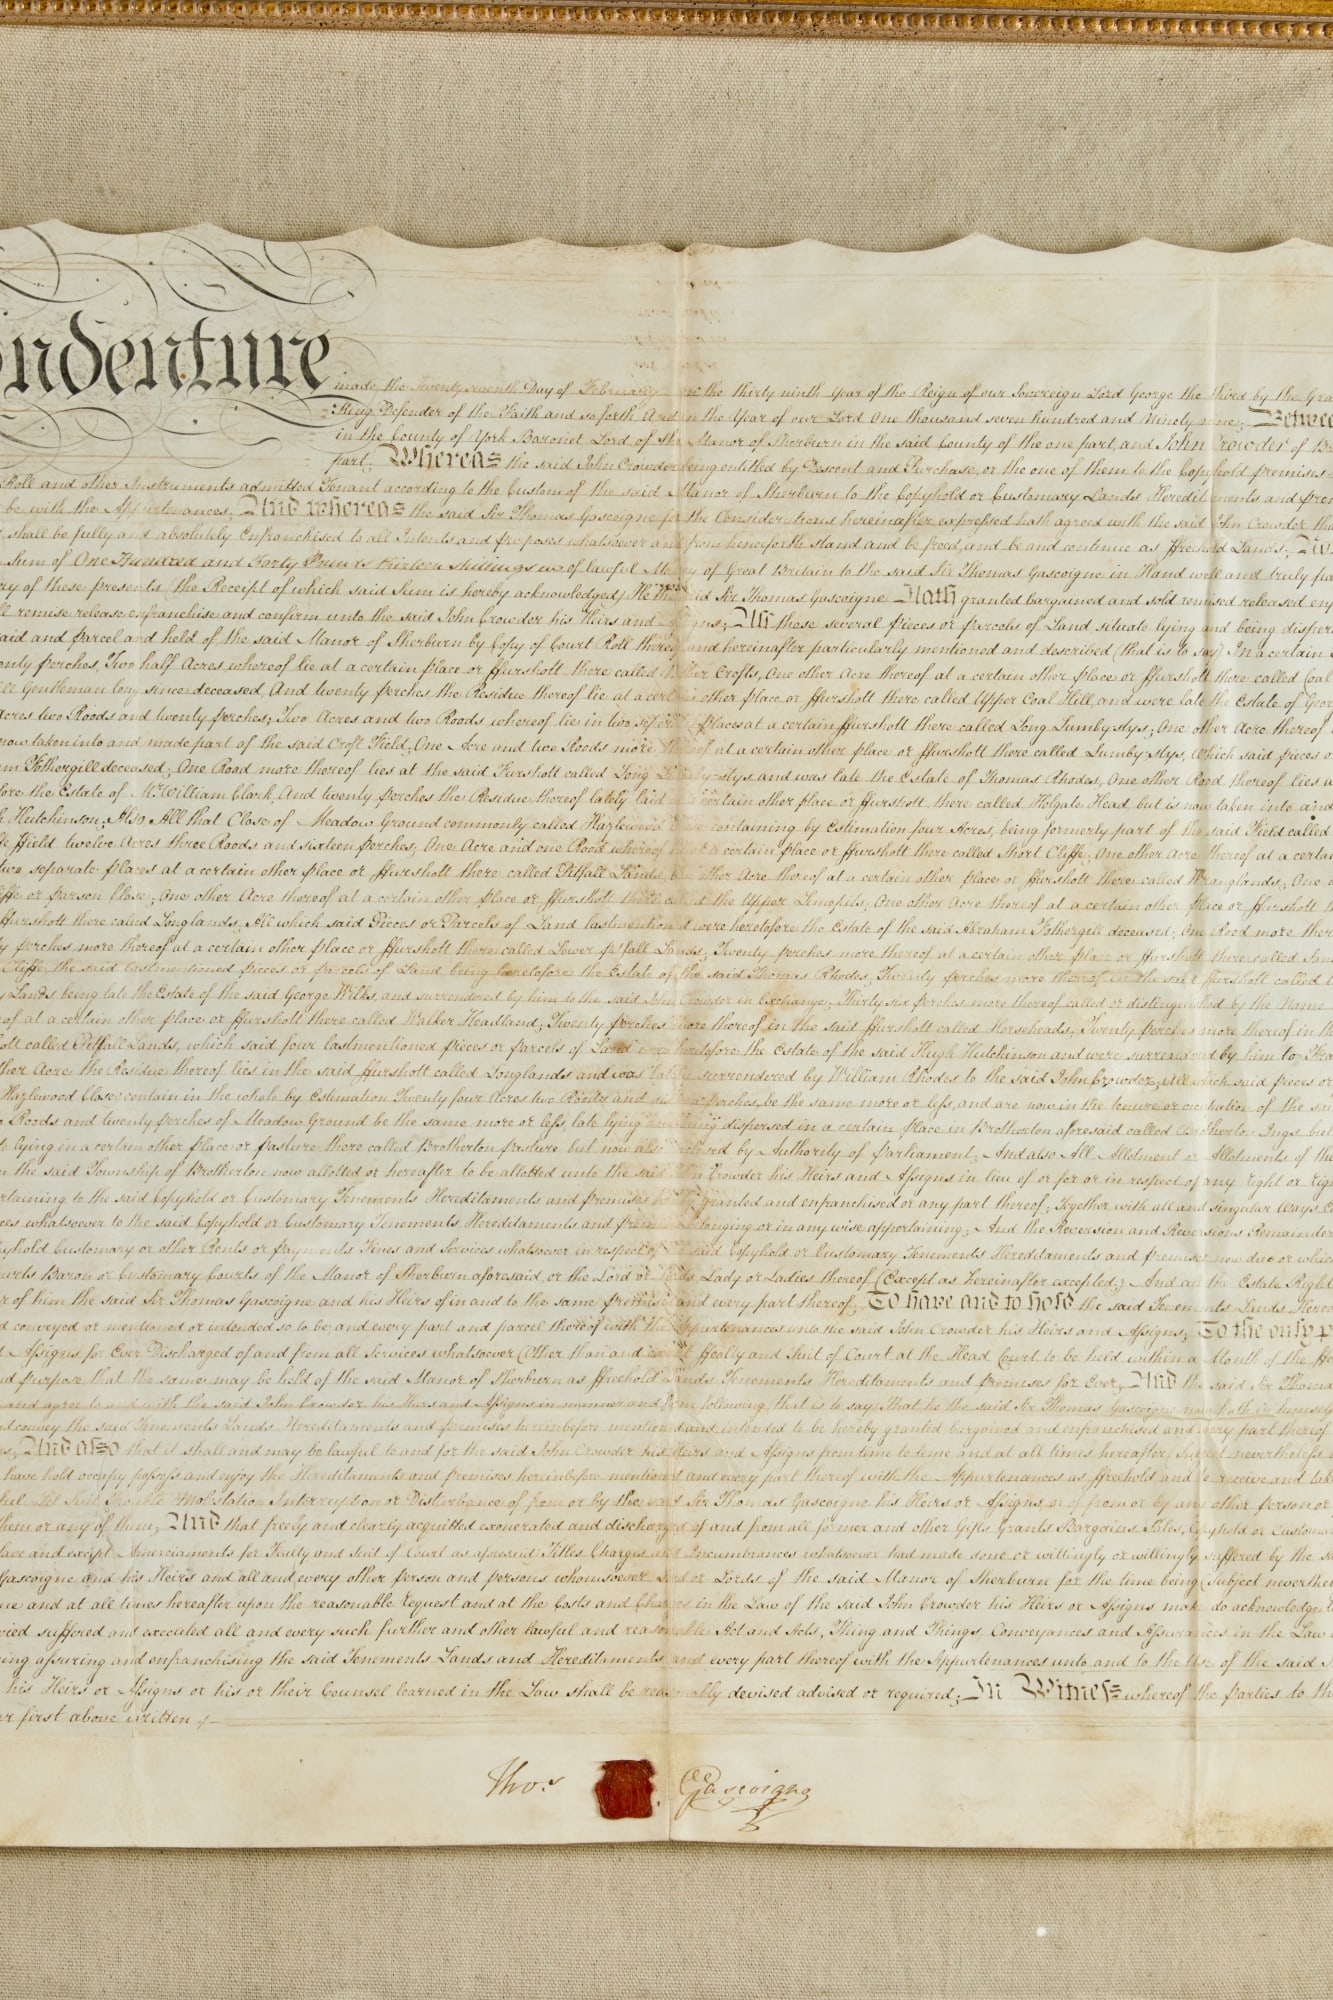 Indenture
made the Twenty seventh Day of February in the thirty ninth Year of the Reign of our Sovereign Lord George the third by the Gra
King Defender of the Faith and so forth And in the Year of our Lord One thousand seven hundred and Ninety nine; Betwee
in the County of York Baronet Lord of the Manor of Sherburn in the said County of the one part, and John Crowder of
part; Whereas the said John Crowder being entitled by Descent and Purchase, or the one of them to the Copyhold premises
Roll and other Instruments admitted Tenant according to the Custom of the said Manor of Sherburn to the Copyhold or Customary Lands Hereditaments and prem
be with the Appurtenances; And whereas the said Sir Thomas Gascoigne for the Considerations hereinafter expressed hath agreed with the said John Crowder tha
shall be fully and absolutely Enfranchised to all Intents and purposes whatsoever and from henceforth stand and be freed, and be and continue as ffreehold Lands;
Sum of One Hundred and Forty Pounds thirteen shillings of lawful Money of Great Britain to the said Sir Thomas Gascoigne in Hand well and truly pa
ry of these presents (the Receipt of which said Sum is hereby acknowledged) He the said Sir Thomas Gascoigne Hath granted bargained and sold remised released en
ll remise release enfranchise and confirm unto the said John Crowder his Heirs and Assigns; All those several pieces or parcels of Land situate lying and being disper
aid and parcel and held of the said Manor of Sherburn by Copy of Court Roll thereof and hereinafter particularly mentioned and described (that is to say) In a certain
enty perches, Two half Acres whereof lie at a certain place or ffurshott there called Crofts, One other Acre thereof at a certain other place or ffurshott there called Coal
ill Gentleman long since deceased, And twenty perches the Residue thereof lie at a certain other place or ffurshott there called Upper Coal Hill, and were late the Estate of Geor
Acres two Roods and twenty perches; Two Acres and two Roods whereof lie in two several places at a certain ffurshott there called Long Lumbystys; One other Acre thereof
now taken into and made part of the said Croft Field; One Acre and two Roods more thereof at a certain other place or ffurshott there called Lumby stys, Which said pieces o
am Fothergill deceased; One Rood more thereof lies at the said Furshott called Long Lumbystys and was late the Estate of Thomas Rhodes, One other Rood thereof lies a
fore the Estate of Mr William Clark, And twenty perches the Residue thereof lately laid certain other place or ffurshott there called Holgate Head, but is now taken into and
h Hutchinson; Also All that Close of Meadow Ground commonly called Hazlewood Close containing by Estimation four Acres, being formerly part of the said Field called
ffield twelve Acres three Roods and sixteen perches; One Acre and one Rood whereof lie at a certain place or ffurshott there called Short Cliffe; One other Acre thereof at a certai
two separate places at a certain other place or ffurshott there called Pitfall Lands, One other Acre thereof at a certain other place or ffurshott there called Wranglands; One
iffe or Parson Close; One other Acre thereof at a certain other place or ffurshott there called the Upper Limepits; One other Acre thereof at a certain other place or ffurshott
ffurshott there called Longlands, All which said Pieces or Parcels of Land lastmentioned were heretofore the Estate of the said Abraham Fothergill deceased; One Rood more ther
y perches more thereof at a certain other place or ffurshott there called Lower pitfall Lands; Twenty perches more thereof at a certain other place or ffurshott there called
Cliffe, the said lastmentioned pieces or parcels of Land being heretofore the Estate of the said Thomas Rhodes; Twenty perches more thereof in the said ffurshott called
Lands being late the Estate of the said George Wilks, and surrendered by him to the said John Crowder in Exchange; Thirty six perches more thereof called or distinguished by the Name
eof at a certain other place or ffurshott there called Walker Headland; Twenty perches more thereof in the said ffurshott called Horseheads; Twenty perches more thereof in th
ott called Pitfall Lands, which said four lastmentioned pieces or parcels of Land were heretofore the Estate of the said Hugh Hutchinson and were surrendered by him to
ther Acre the Residue thereof lies in the said ffurshott called Longlands and was late surrendered by William Rhodes to the said John Crowder, All which said pieces or
Hazlewood Close contain in the whole by Estimation Twenty four Acres two Roods and perches, be the same more or less, and are now in the tenure or occupation of the sai
Roods and twenty perches of Meadow Ground be the same more or less, late lying and being dispersed in a certain place in Brotherton aforesaid called Brotherton Ings but
lying in a certain other place or pasture there called Brotherton Pasture but now also inclosed by Authority of Parliament; And also All Allotment or Allotments of the
n the said Township of Brotherton now allotted or hereafter to be allotted unto the said John Crowder his Heirs and Assigns in lieu of or for or in respect of any right or rig
rtaining to the said Copyhold or Customary Tenements Hereditaments and premises hereby granted and enfranchised or any part thereof; Together with all and singular Ways
ces whatsoever to the said Copyhold or Customary Tenements Hereditaments and premises belonging or in any wise appertaining; And the Reversion and Reversions Remainder
pyhold Customary or other Rents or payments Fines and Services whatsoever in respect of the said Copyhold or Customary Tenements Hereditaments and premises now due or which
ourts Baron or Customary Courts of the Manor of Sherburn aforesaid, or the Lord or Lords Lady or Ladies thereof (Except as hereinafter excepted;) And all the Estate Right
r of him the said Sir Thomas Gascoigne and his Heirs of in and to the same premises and every part thereof; To have and to hold the said Tenements Lands Hered
d conveyed or mentioned or intended so to be, and every part and parcel thereof with the Appurtenances unto the said John Crowder his Heirs and Assigns; To the only p
Assigns for Ever Discharged of and from all Services whatsoever (Other than and except ffealty and Suit of Court at the Head Court to be held within a Month of the
nd purpose that the same may be held of the said Manor of Sherburn as ffreehold Lands Tenements Hereditaments and premises for Ever, And the said Sir Thoma
and agree to and with the said John Crowder his Heirs and Assigns in manner and form following, that is to say, That he the said Sir Thomas Gascoigne now hath in himself
nd convey the said Tenements Lands Hereditaments and premises hereinbefore mentioned and intended to be hereby granted bargained and enfranchised and every part thereof
And also that it shall and may be lawful to and for the said John Crowder his Heirs and Assigns from time to time and at all times hereafter (subject nevertheless
have hold occupy possess and enjoy the Hereditaments and premises hereinbefore mentioned and every part thereof with the Appurtenances as ffreehold and to receive and tak
Let Suit Trouble Molestation Interruption or Disturbance of from or by the said Sir Thomas Gascoigne his Heirs or Assigns, or of from or by any other person or
them or any of them; And that freely and clearly acquitted exonerated and discharged of and from all former and other Gifts Grants Bargains Sales, Copyhold or Customa
ave and except Amerciaments for Fealty and Suit of Court as aforesaid Titles Charges and Incumbrances whatsoever had made done or wittingly or willingly suffered by the sa
Gascoigne and his Heirs and all and every other person and persons whomsoever Lord or Lords of the said Manor of Sherburn for the time being (Subject neverthe
me and at all times hereafter upon the reasonable Request and at the Costs and Charges in the Law of the said John Crowder his Heirs or Assigns make do acknowledge
vied suffered and executed all and every such further and other lawful and reasonable Act and Acts, Thing and Things, Conveyances and Assurances in the Law
ing assuring and enfranchising the said Tenements Lands and Hereditaments and every part thereof with the Appurtenances unto and to the Use of the said
his Heirs or Assigns or his or their Counsel learned in the Law shall be reasonably devised advised or required; In Witness whereof the parties to th
ar first above written
Thos. Gascoigne